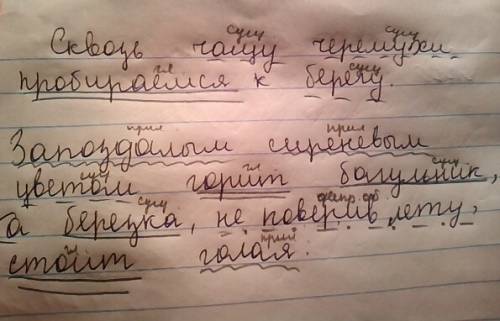 сущ сущ
Сквозь чащу черемухи
гл сущ
пробираемся к берегу.
прил прил
Запоздалым сиреневым
сущ гл сущ
цветом горит багульник,
сущ деепр. об
а березка, не поверив лету,
гл прил
стоит голая.